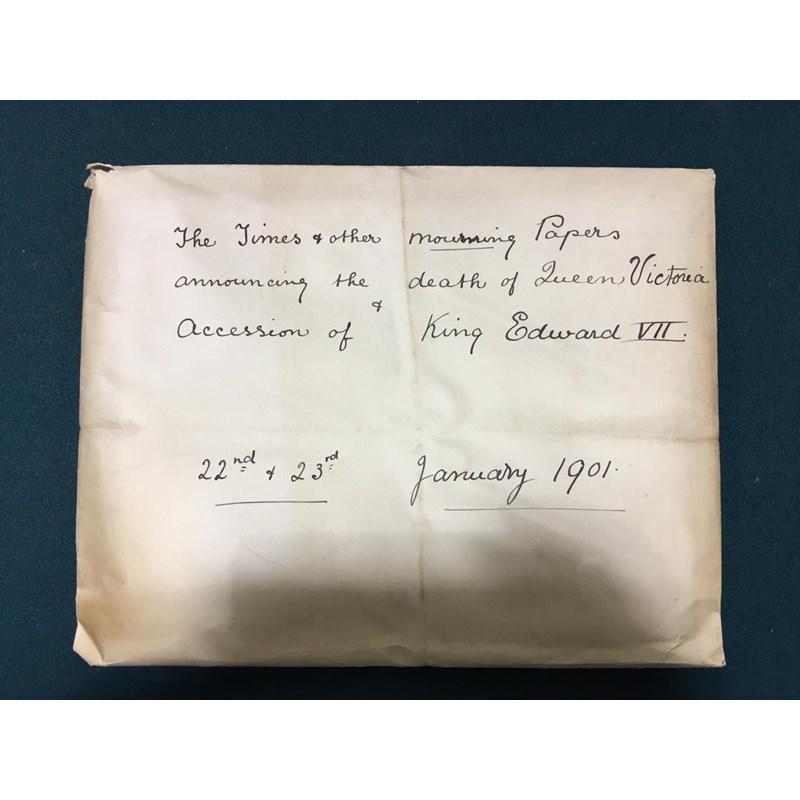 The Times & other mourning Papers
announcing the death of Queen Victoria
&
Accession of King Edward VII.
22nd & 23rd January 1901.